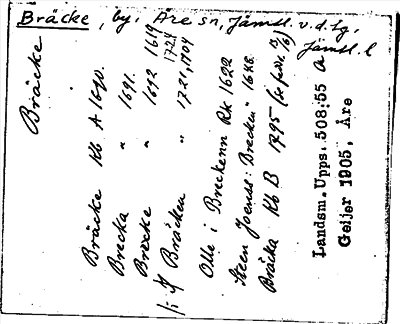 Bräcke, by, Åre sn, Jämtl. v. d. tg,
Jämtl. l
Bräcke
Bräcke Kb A 1640.
Brecka " 1691.
Bracke " 1692 1619
i Bräcken " 1721, 1704 1724
Olle i Breckenn RK 1622
Steen Joensson: Brecken 1648.
Bräcka Kb B 1795
Landsm. Upps. 508:55 a
Geijer 1905, Åre